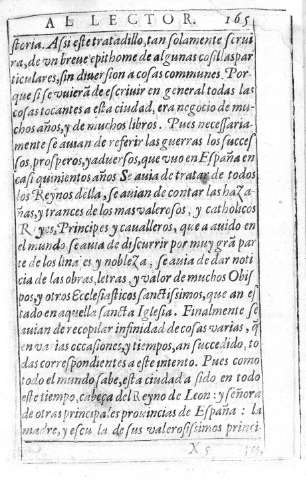 AL LECTOR. 165
storia. Assi este tratadillo, tan solamente serui
ra, de vn breue epithome de algunas cosillas par
ticulares, sin diuersion a cosas communes. Por
que si se vuierã de escriuir en general todas las
cosas tocantes a esta ciudad, era negocio de mu-
chos años, y de muchos libros. Pues necessaria-
mente se auian de referir las guerras los succes
sos, prosperos, y aduersos, que vuo en España en
casi quinientos años Se auia de tratar de todos
los Reynos della, se auian de contar las haza
ñas, y trances de los mas valerosos, y catholicos
R yes, Principes y caualleros, que a auido en
el mundo se auia de discurrir por muy grã par
te de los lina es y nobleza, se auia de dar noti
cia de las obras, letras, y valor de muchos Obis
pos, y otros Ecclesiasticos sanctissimos, que an es
tado en aquella sancta Iglesia. Finalmente se
auian de recopilar infinidad de cosas varias, q̃
en va ias occasiones, y tiempos, an succedido, to
das correspondientes a este intento. Pues como
todo el mundo sabe, esta ciuda a sido en todo
este tiempo, cabeça del Reyno de Leon: y señora
de otras principales prouincias de España: la
madre, y escu la de sus valerosissimos princi-
X 5